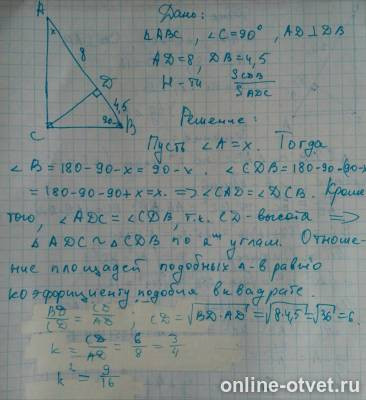 Дано:
△ABC, ∠C=90°, AD⊥DB
AD=8, DB=4,5
Н-ти S CDB / S ADC
A
x
8
D
4,5
C
90-
B
Решение:
Пусть ∠A=x. Тогда
∠B=180-90-x=90-x. ∠CDB=180-90-(90-x)
=180-90-90+x=x. ⟹ ∠CAD=∠DCB. Кроме
того, ∠ADC=∠CDB, т.к. CD-высота ⟹
△ADC ~ △CDB по 2ум углам. Отноше-
ние площадей подобных Δ-в равно
коэффициенту подобия в квадрате.
BD/CD = CD/AD; CD=√BD·AD=√8·4,5=√36=6
k = CD/AD = 6/8 = 3/4
k² = 9/16
online-otvet.ru